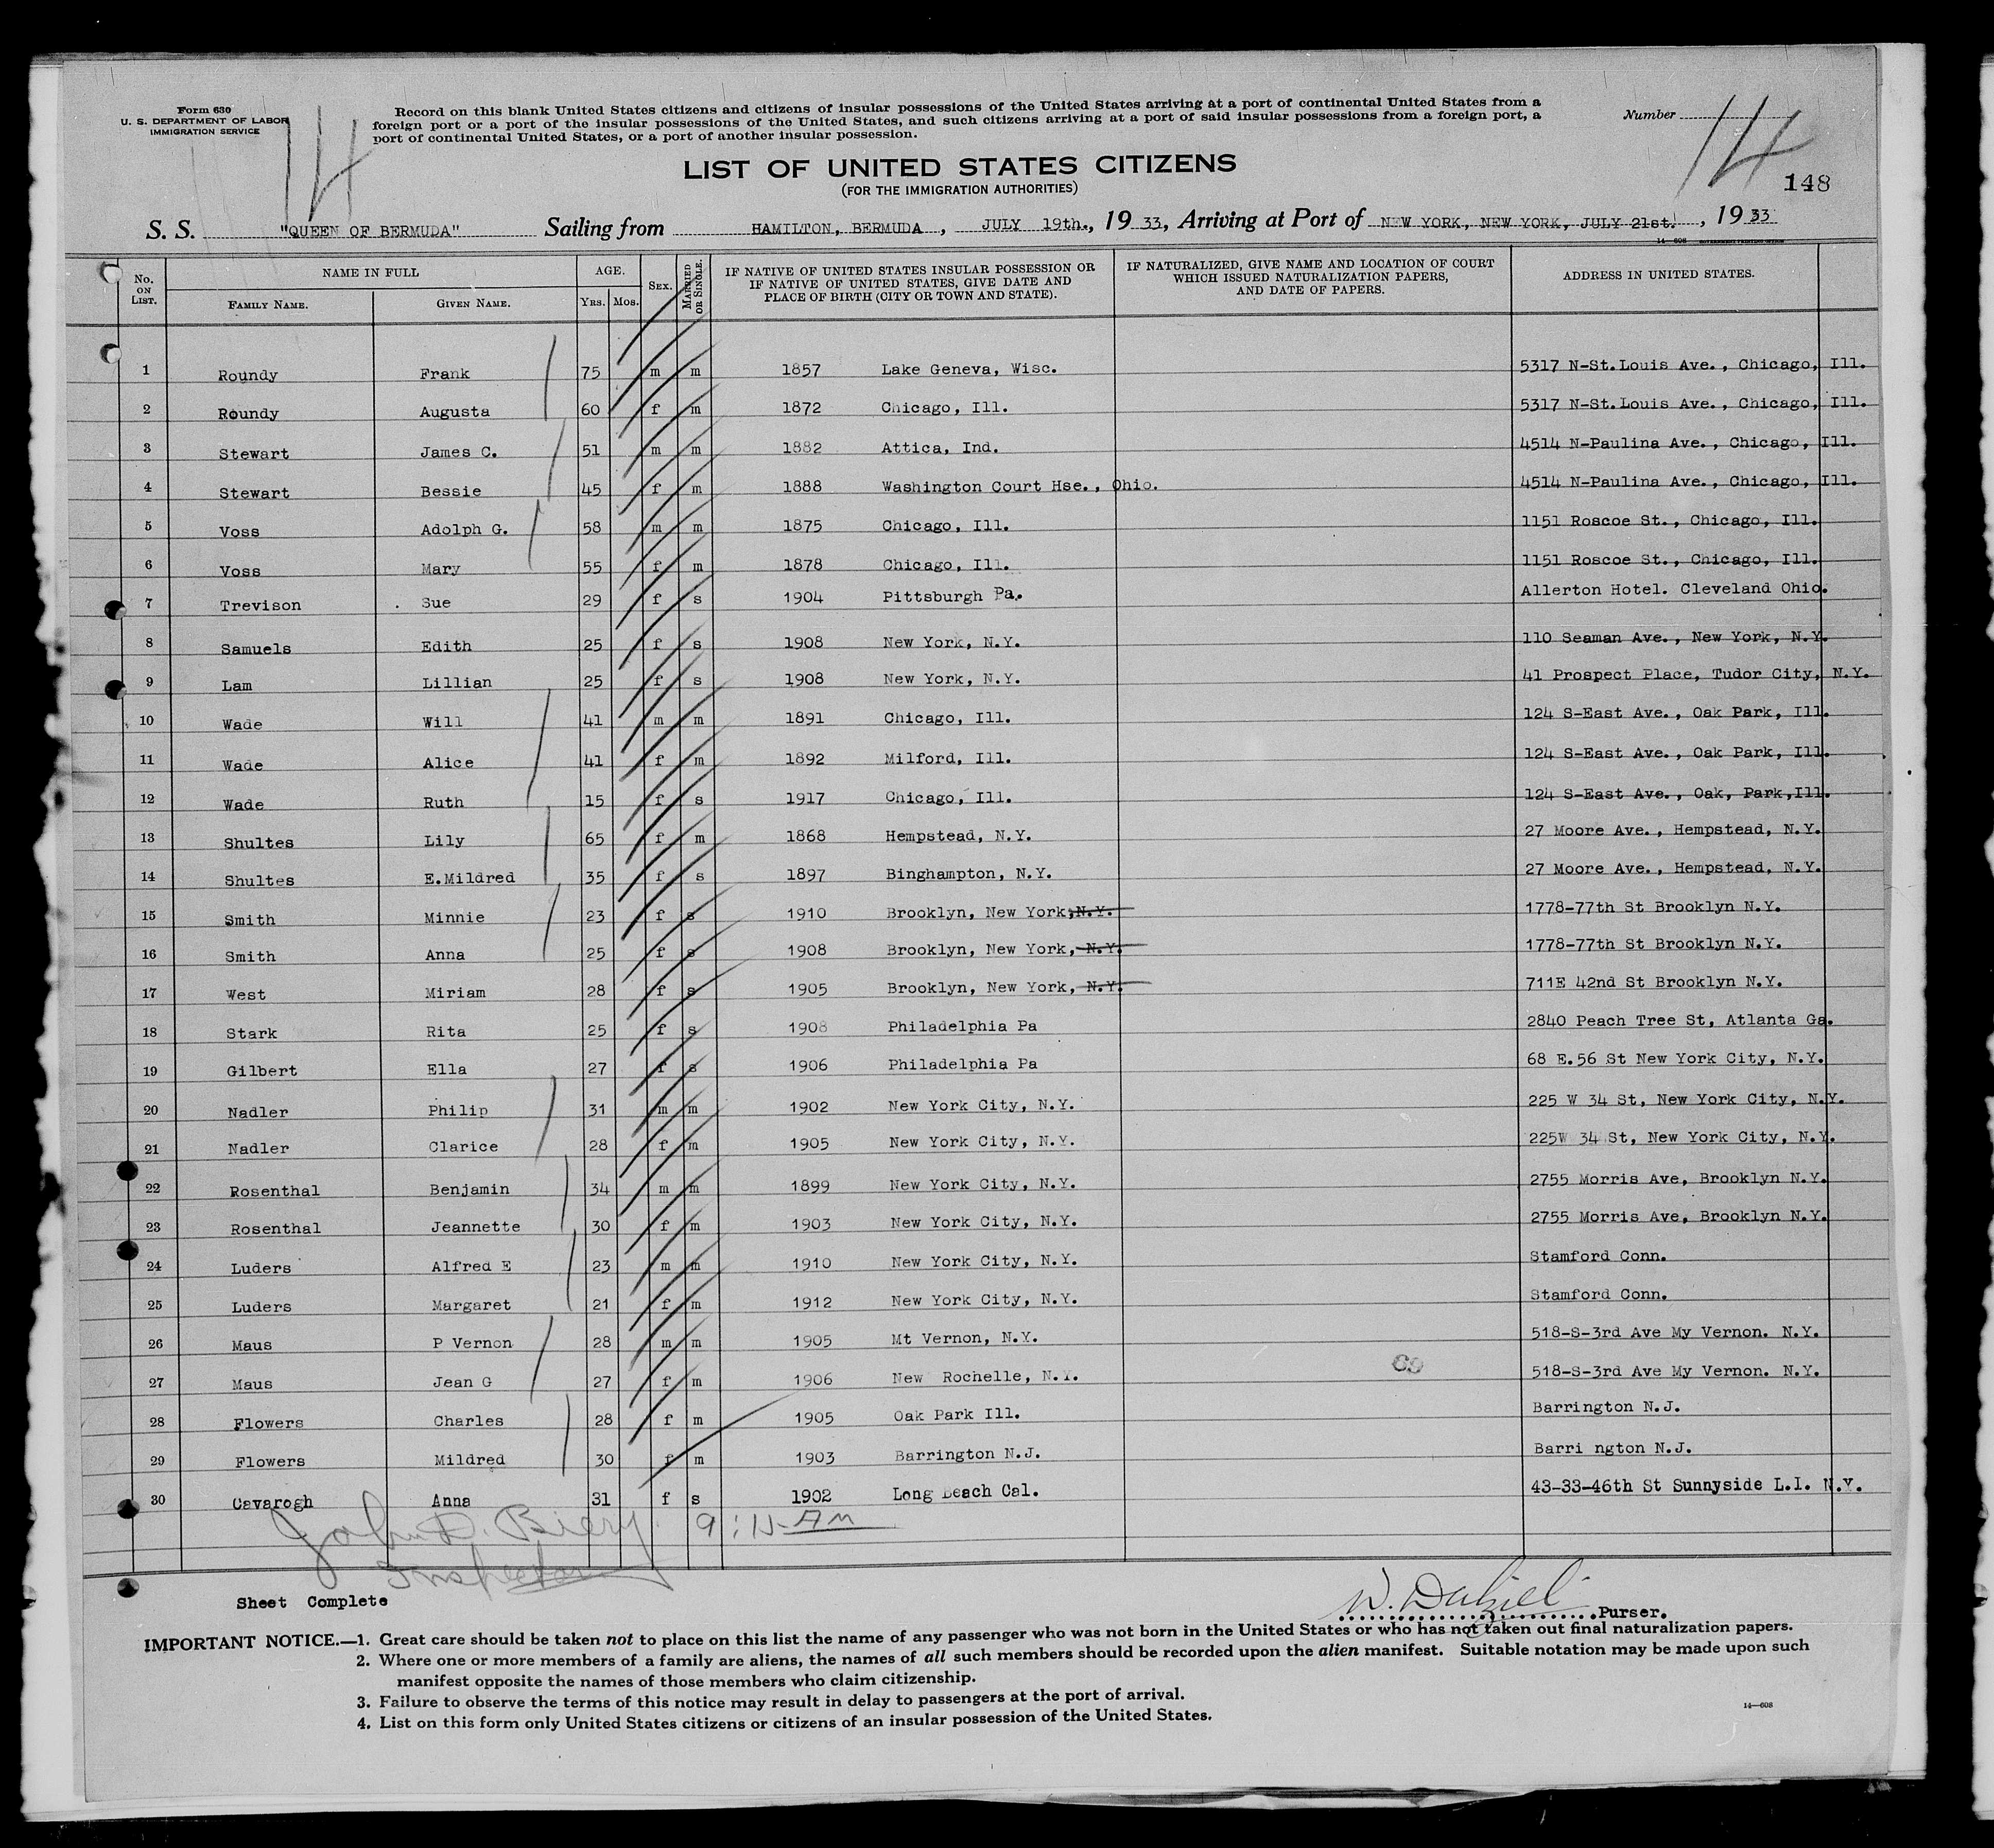 Form 630
U. S. DEPARTMENT OF LABOR
IMMIGRATION SERVICE
14
Record on this blank United States citizens and citizens of insular possessions of the United States arriving at a port of continental United States from a
foreign port or a port of the insular possessions of the United States, and such citizens arriving at a port of said insular possessions from a foreign port, a
port of continental United States, or a port of another insular possession.
Number
14
148
LIST OF UNITED STATES CITIZENS
(FOR THE IMMIGRATION AUTHORITIES)
S. S. "QUEEN OF BERMUDA" Sailing from HAMILTON, BERMUDA, JULY 19th., 1933, Arriving at Port of NEW YORK, NEW YORK, JULY 21st., 1933
14—608
No. ON LIST. NAME IN FULL FAMILY NAME. GIVEN NAME. AGE. YRS. MOS. SEX. MARRIED OR SINGLE. IF NATIVE OF UNITED STATES INSULAR POSSESSION OR IF NATIVE OF UNITED STATES, GIVE DATE AND PLACE OF BIRTH (CITY OR TOWN AND STATE). IF NATURALIZED, GIVE NAME AND LOCATION OF COURT WHICH ISSUED NATURALIZATION PAPERS, AND DATE OF PAPERS. ADDRESS IN UNITED STATES.
1 Roundy Frank 75 m m 1857 Lake Geneva, Wisc. 5317 N-St.Louis Ave., Chicago, Ill.
2 Roundy Augusta 60 f m 1872 Chicago, Ill. 5317 N-St.Louis Ave., Chicago, Ill.
3 Stewart James C. 51 m m 1882 Attica, Ind. 4514 N-Paulina Ave., Chicago, Ill.
4 Stewart Bessie 45 f m 1888 Washington Court Hse., Ohio. 4514 N-Paulina Ave., Chicago, Ill.
5 Voss Adolph G. 58 m m 1875 Chicago, Ill. 1151 Roscoe St., Chicago, Ill.
6 Voss Mary 55 f m 1878 Chicago, Ill. 1151 Roscoe St., Chicago, Ill.
7 Trevison Sue 29 f s 1904 Pittsburgh Pa. Allerton Hotel. Cleveland Ohio.
8 Samuels Edith 25 f s 1908 New York, N.Y. 110 Seaman Ave., New York, N.Y.
9 Lam Lillian 25 f s 1908 New York, N.Y. 41 Prospect Place, Tudor City, N.Y.
10 Wade Will 41 m m 1891 Chicago, Ill. 124 S-East Ave., Oak Park, Ill.
11 Wade Alice 41 f m 1892 Milford, Ill. 124 S-East Ave., Oak Park, Ill.
12 Wade Ruth 15 f s 1917 Chicago, Ill. 124 S-East Ave., Oak, Park,Ill.
13 Shultes Lily 65 f m 1868 Hempstead, N.Y. 27 Moore Ave., Hempstead, N.Y.
14 Shultes E.Mildred 35 f s 1897 Binghampton, N.Y. 27 Moore Ave., Hempstead, N.Y.
15 Smith Minnie 23 f s 1910 Brooklyn, New York,N.Y. 1778-77th St Brooklyn N.Y.
16 Smith Anna 25 f s 1908 Brooklyn, New York, N.Y. 1778-77th St Brooklyn N.Y.
17 West Miriam 28 f s 1905 Brooklyn, New York, N.Y. 711E 42nd St Brooklyn N.Y.
18 Stark Rita 25 f s 1908 Philadelphia Pa 2840 Peach Tree St, Atlanta Ga.
19 Gilbert Ella 27 f s 1906 Philadelphia Pa 68 E.56 St New York City, N.Y.
20 Nadler Philip 31 m m 1902 New York City, N.Y. 225 W 34 St, New York City, N.Y.
21 Nadler Clarice 28 f m 1905 New York City, N.Y. 225W 34 St, New York City, N.Y.
22 Rosenthal Benjamin 34 m m 1899 New York City, N.Y. 2755 Morris Ave, Brooklyn N.Y.
23 Rosenthal Jeannette 30 f m 1903 New York City, N.Y. 2755 Morris Ave, Brooklyn N.Y.
24 Luders Alfred E 23 m m 1910 New York City, N.Y. Stamford Conn.
25 Luders Margaret 21 f m 1912 New York City, N.Y. Stamford Conn.
26 Maus P Vernon 28 m m 1905 Mt Vernon, N.Y. 518-S-3rd Ave My Vernon. N.Y.
27 Maus Jean G 27 f m 1906 New Rochelle, N.Y. 518-S-3rd Ave My Vernon. N.Y.
28 Flowers Charles 28 f m 1905 Oak Park Ill. Barrington N.J.
29 Flowers Mildred 30 f m 1903 Barrington N.J. Barri ngton N.J.
30 Cavarogh Anna 31 f s 1902 Long Beach Cal. 43-33-46th St Sunnyside L.I. N.Y.
John D. Biery
Inspector
Sheet Complete
W. Dalziel
Purser.
IMPORTANT NOTICE.—1. Great care should be taken not to place on this list the name of any passenger who was not born in the United States or who has not taken out final naturalization papers.
2. Where one or more members of a family are aliens, the names of all such members should be recorded upon the alien manifest. Suitable notation may be made upon such
manifest opposite the names of those members who claim citizenship.
3. Failure to observe the terms of this notice may result in delay to passengers at the port of arrival.
4. List on this form only United States citizens or citizens of an insular possession of the United States.
14—608